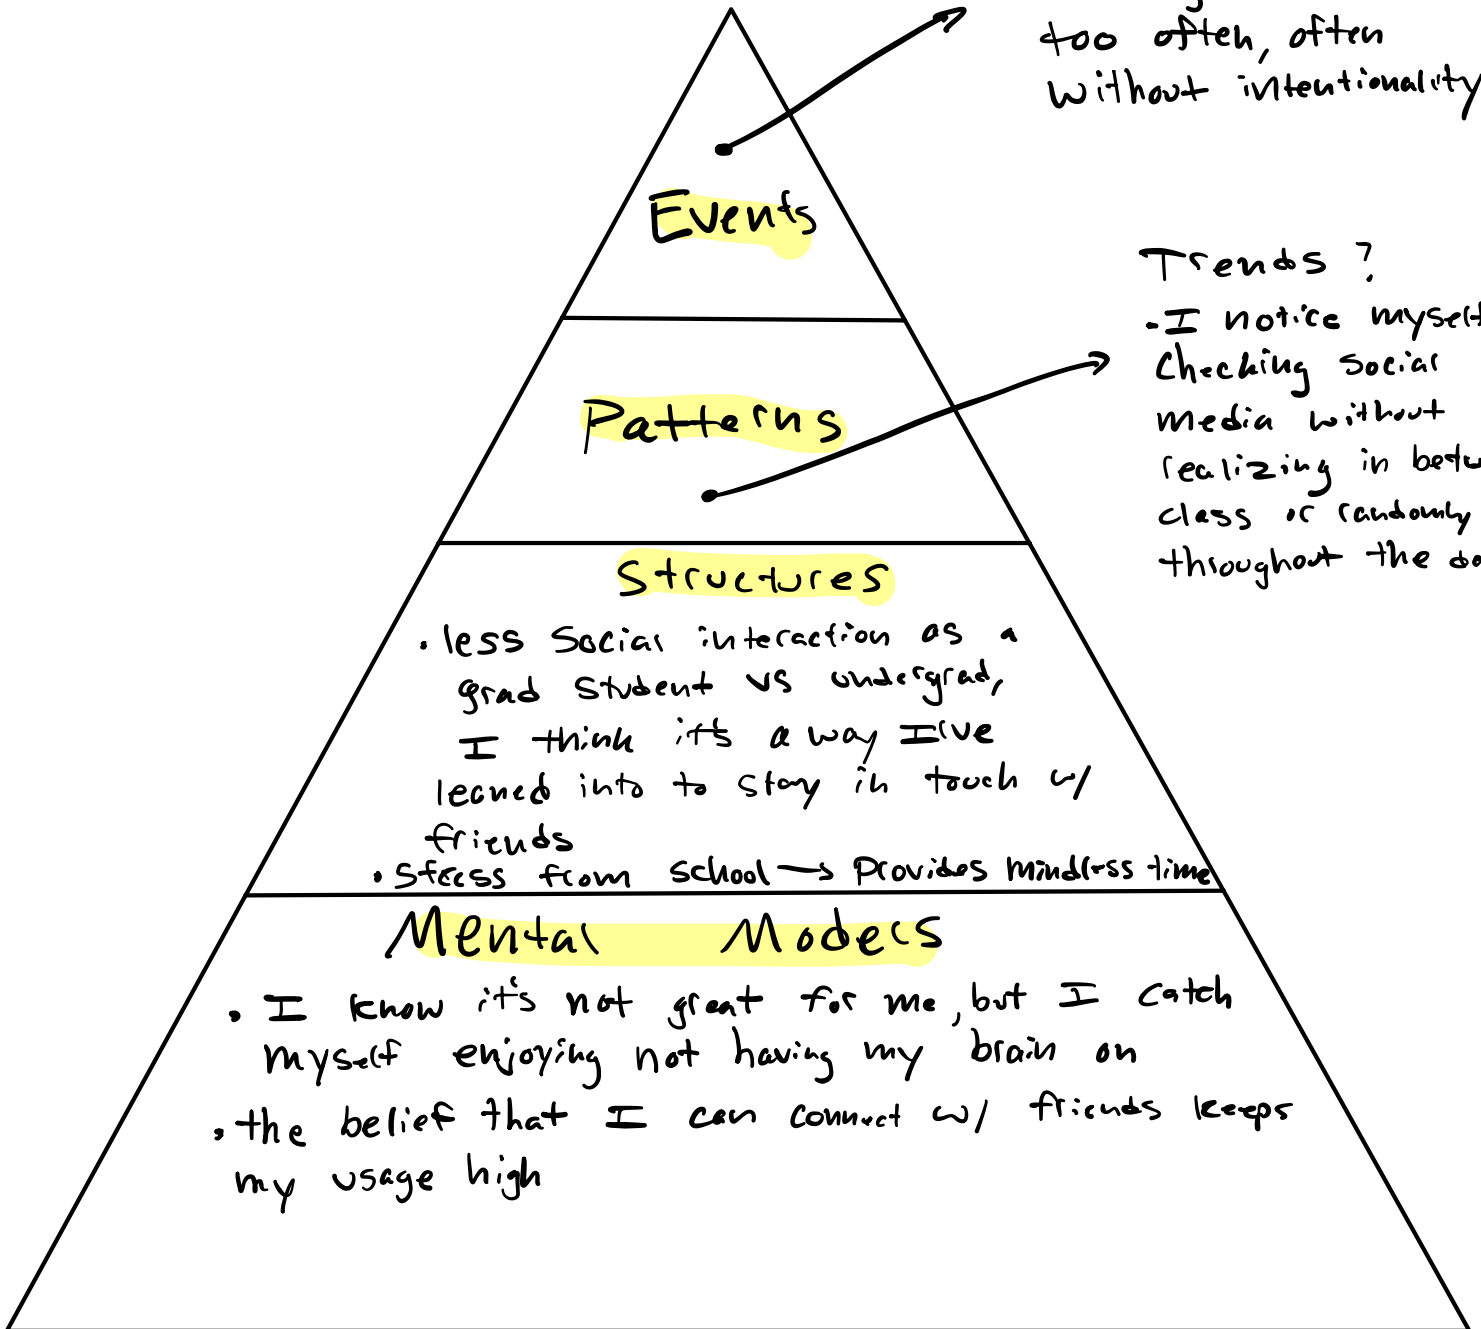 too often, often
without intentionality
Events
Trends?
• I notice myself
checking social
media without
realizing in
class or randomly
throughout the
Patterns
Structures
• less social interaction as a
grad student vs undergrad,
I think it's a way I've
leaned into to stay in touch w/
friends
• stress from school → provides mindless time
Mental Models
• I know it's not great for me, but I catch
myself enjoying not having my brain on
• the belief that I can connect w/ friends keeps
my usage high